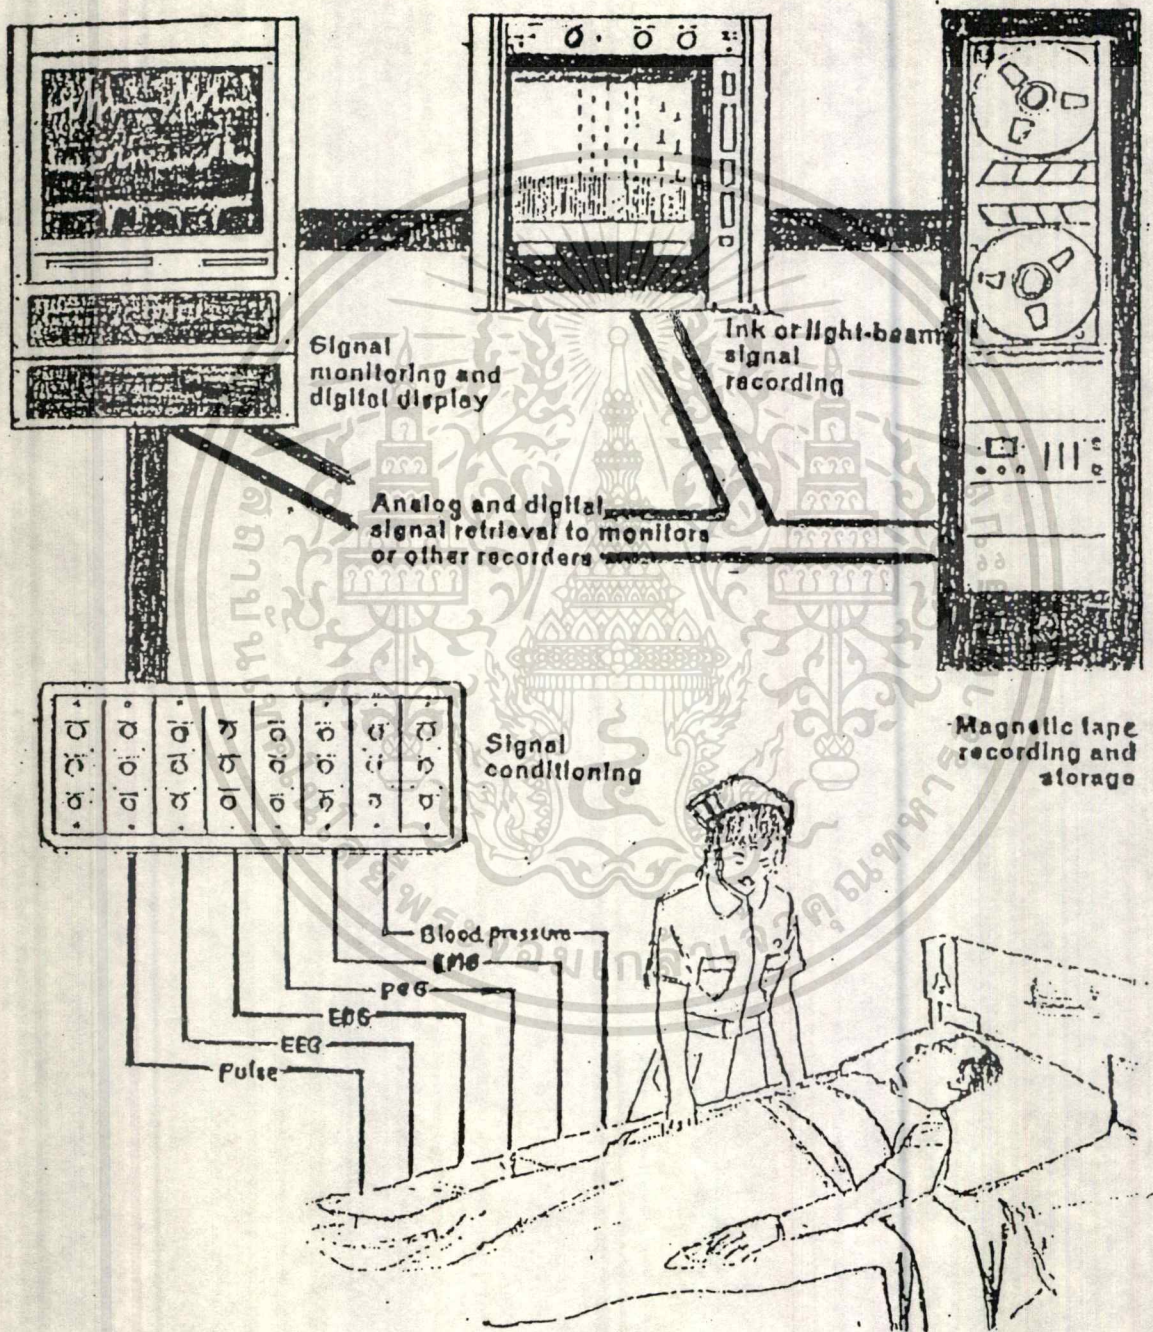 Signal
monitoring and
digital display
Ink or light-beam
signal
recording
Analog and digital
signal retrieval to monitors
or other recorders
Signal
conditioning
Magnetic tape
recording and
storage
Blood pressure
EMG
PCG
EEG
Pulse